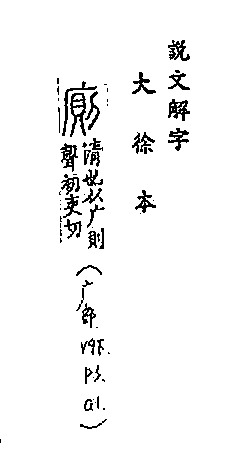 說文解字
大徐本
廁
清也从广則
聲初吏切
(广部.